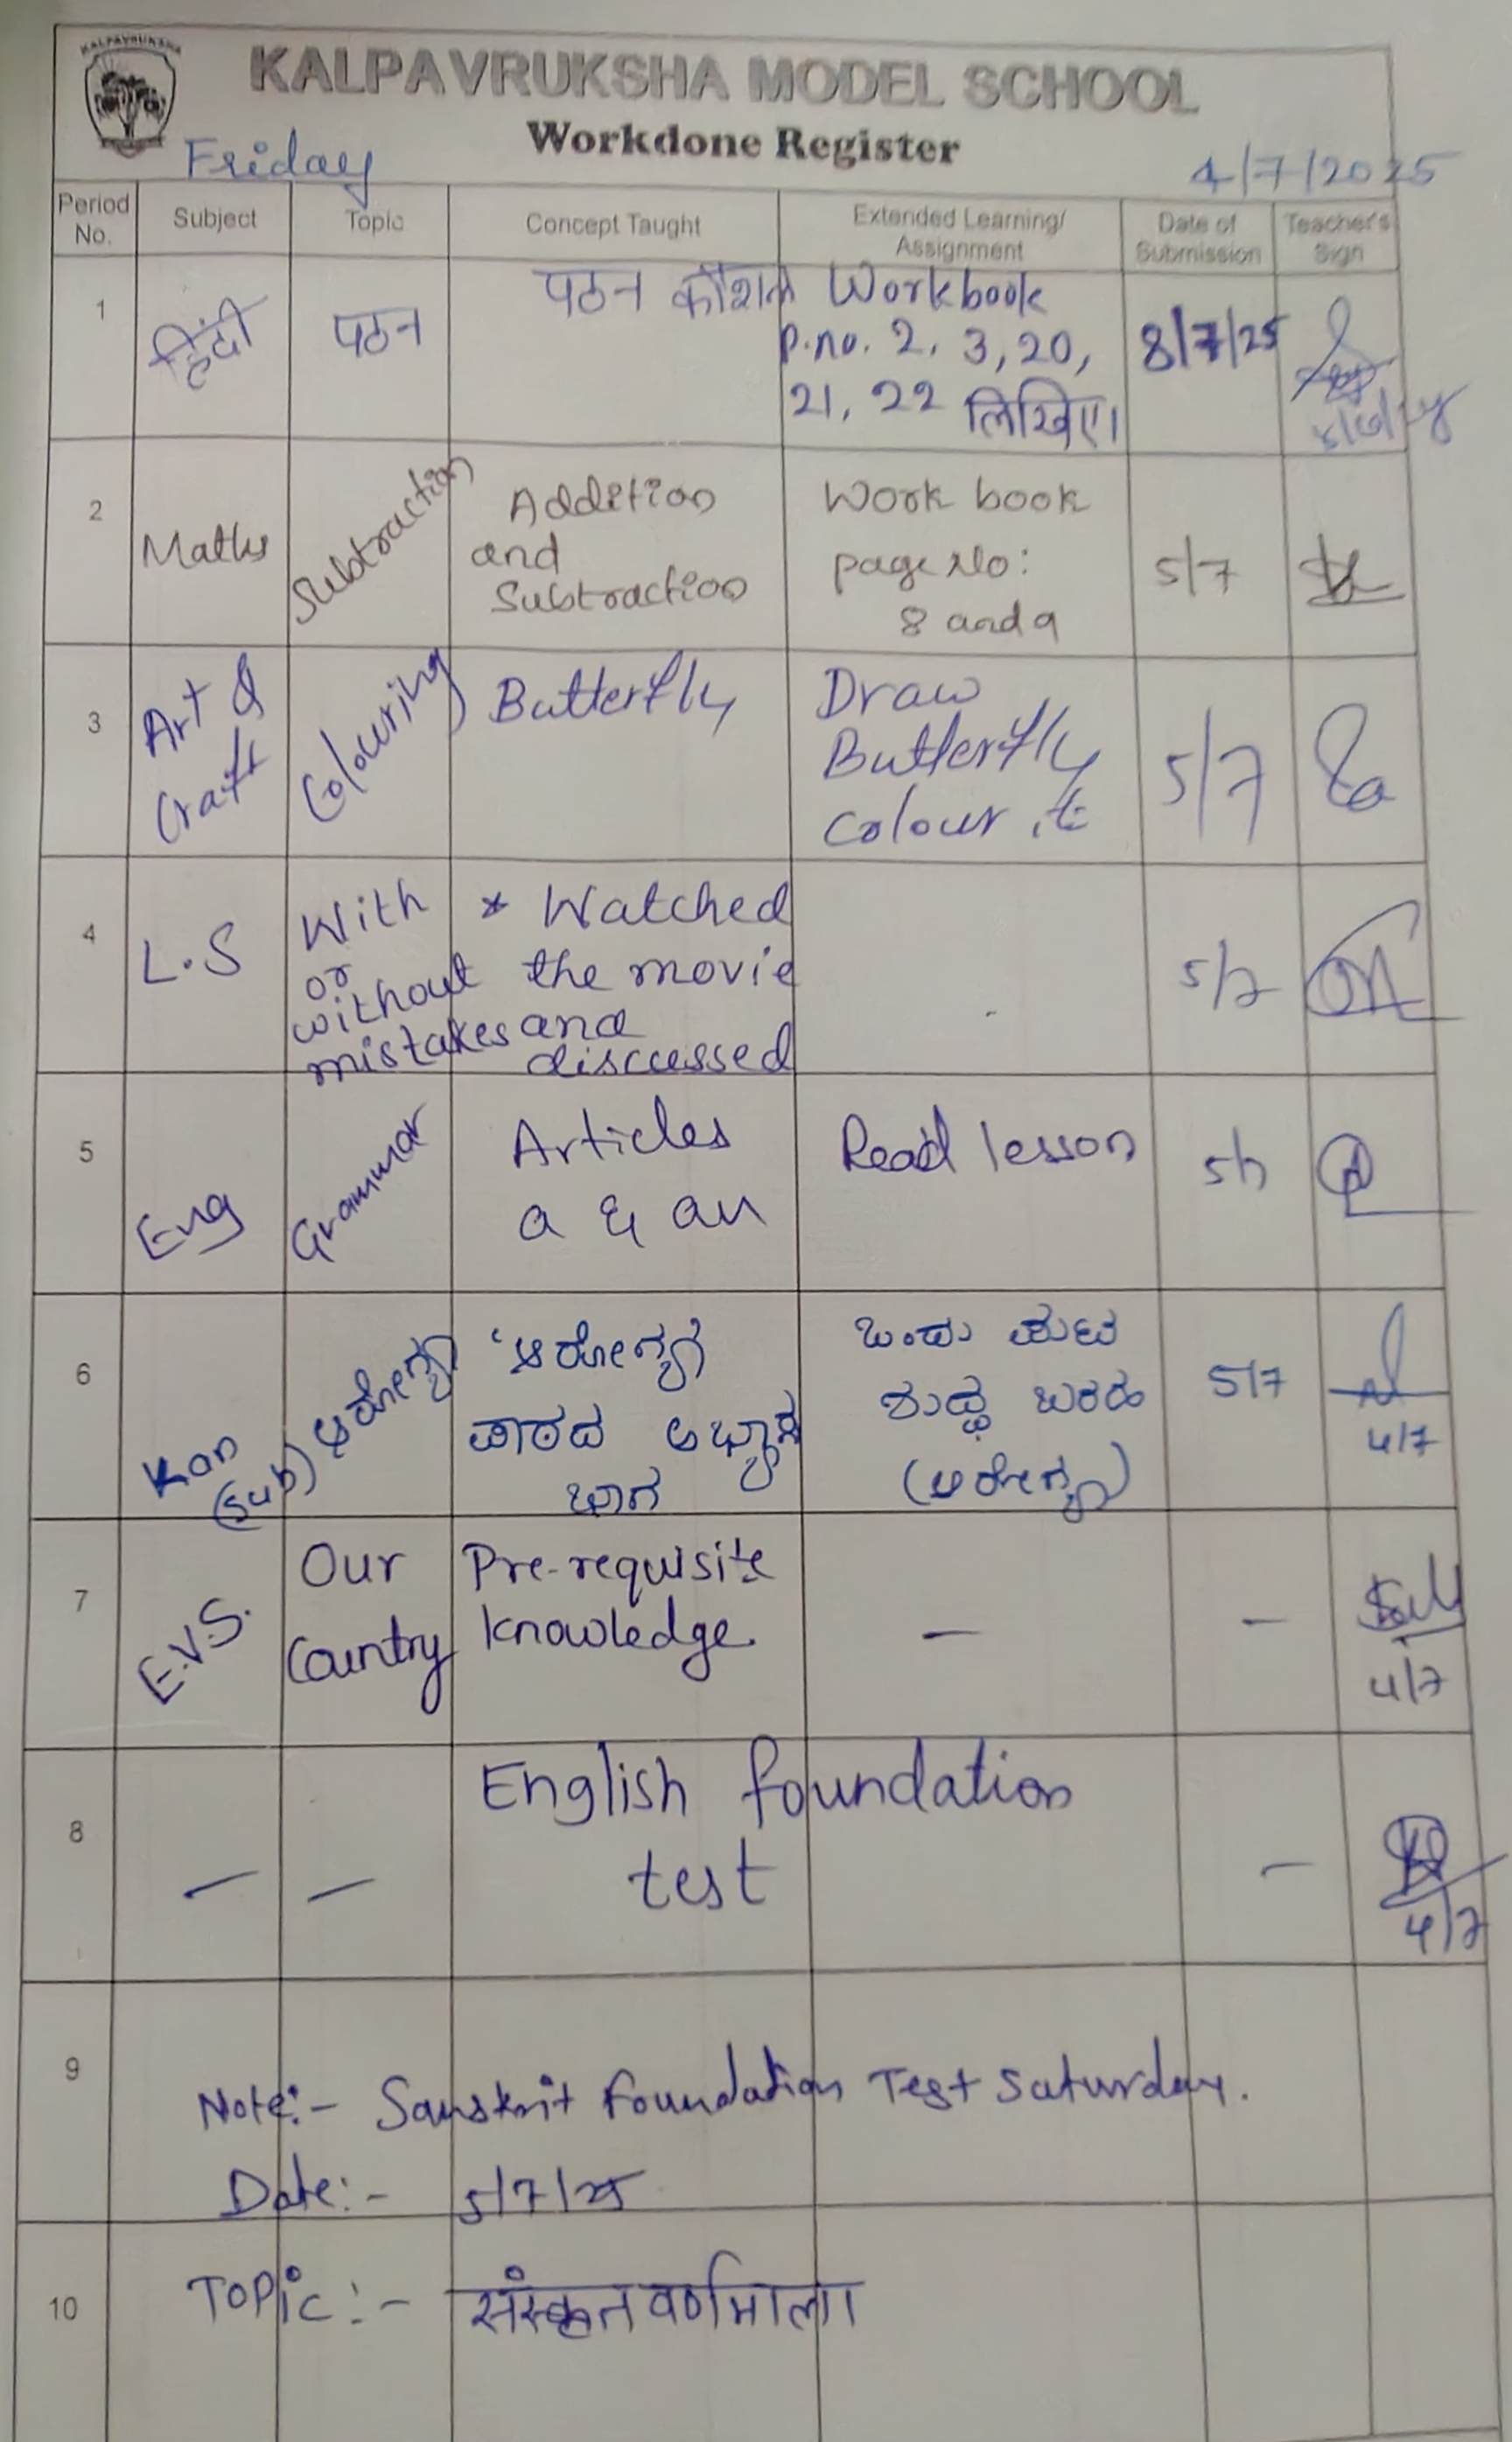 KALPAVRUKSHA
KALPAVRUKSHA MODEL SCHOOL
Workdone Register
Friday 4/7/2025
Period No. Subject Topic Concept Taught Extended Learning/ Assignment Date of Submission Teacher's Sign
1 हिंदी पठन पठन कौशल Workbook
P.no. 2, 3, 20,
21, 22 लिखिए।
8/7/25
2 Maths Subtraction Addition
and
Subtraction
Work book
page No:
8 and 9
5/7
3 Art &
Craft
Colouring
Butterfly
Draw
Butterfly
colour it
5/7
4 L.S
With
or
without
mistakes
* Watched
the movie
and
discussed
5/7
5 Eng
Grammar
Articles
a & an
Read lesson
5/7
6 Kan
(sub)
ಆರೋಗ್ಯ
'ಆರೋಗ್ಯ'
ಪಾಠದ ಅಭ್ಯಾಸ
ಭಾಗ
ಒಂದು ಪುಟ
ಶುದ್ಧ ಬರಹ
(ಆರೋಗ್ಯ)
5/7
4/7
7 E.V.S.
Our
Country
Pre-requisite
knowledge.
—
—
4/7
8 — —
English foundation
test
—
4/7
9
Note:- Sanskrit Foundation Test Saturday.
Date:- 5/7/25
10 Topic:- संस्कृत वर्णमाला